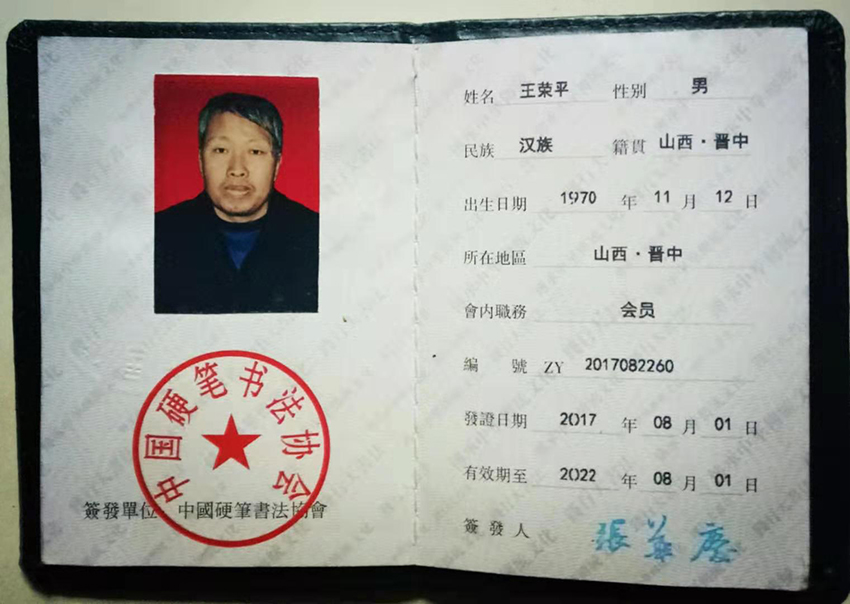 中国硬笔书法协会
簽發單位 中國硬筆書法協會
姓名 王荣平 性别 男
民族 汉族 籍貫 山西·晋中
出生日期 1970 年 11 月 12 日
所在地區 山西·晋中
會内職務 会员
編 號 ZY 2017082260
發證日期 2017 年 08 月 01 日
有效期至 2022 年 08 月 01 日
簽發人 張華慶